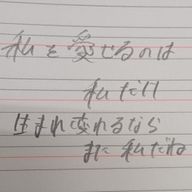 私を愛せるのは
私だけ
生まれ変れるなら
また私だね